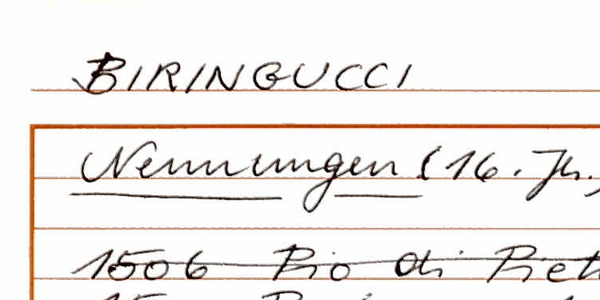 BIRINGUCCI
Nennungen (16. Jh.)
1506 Pio di Piet